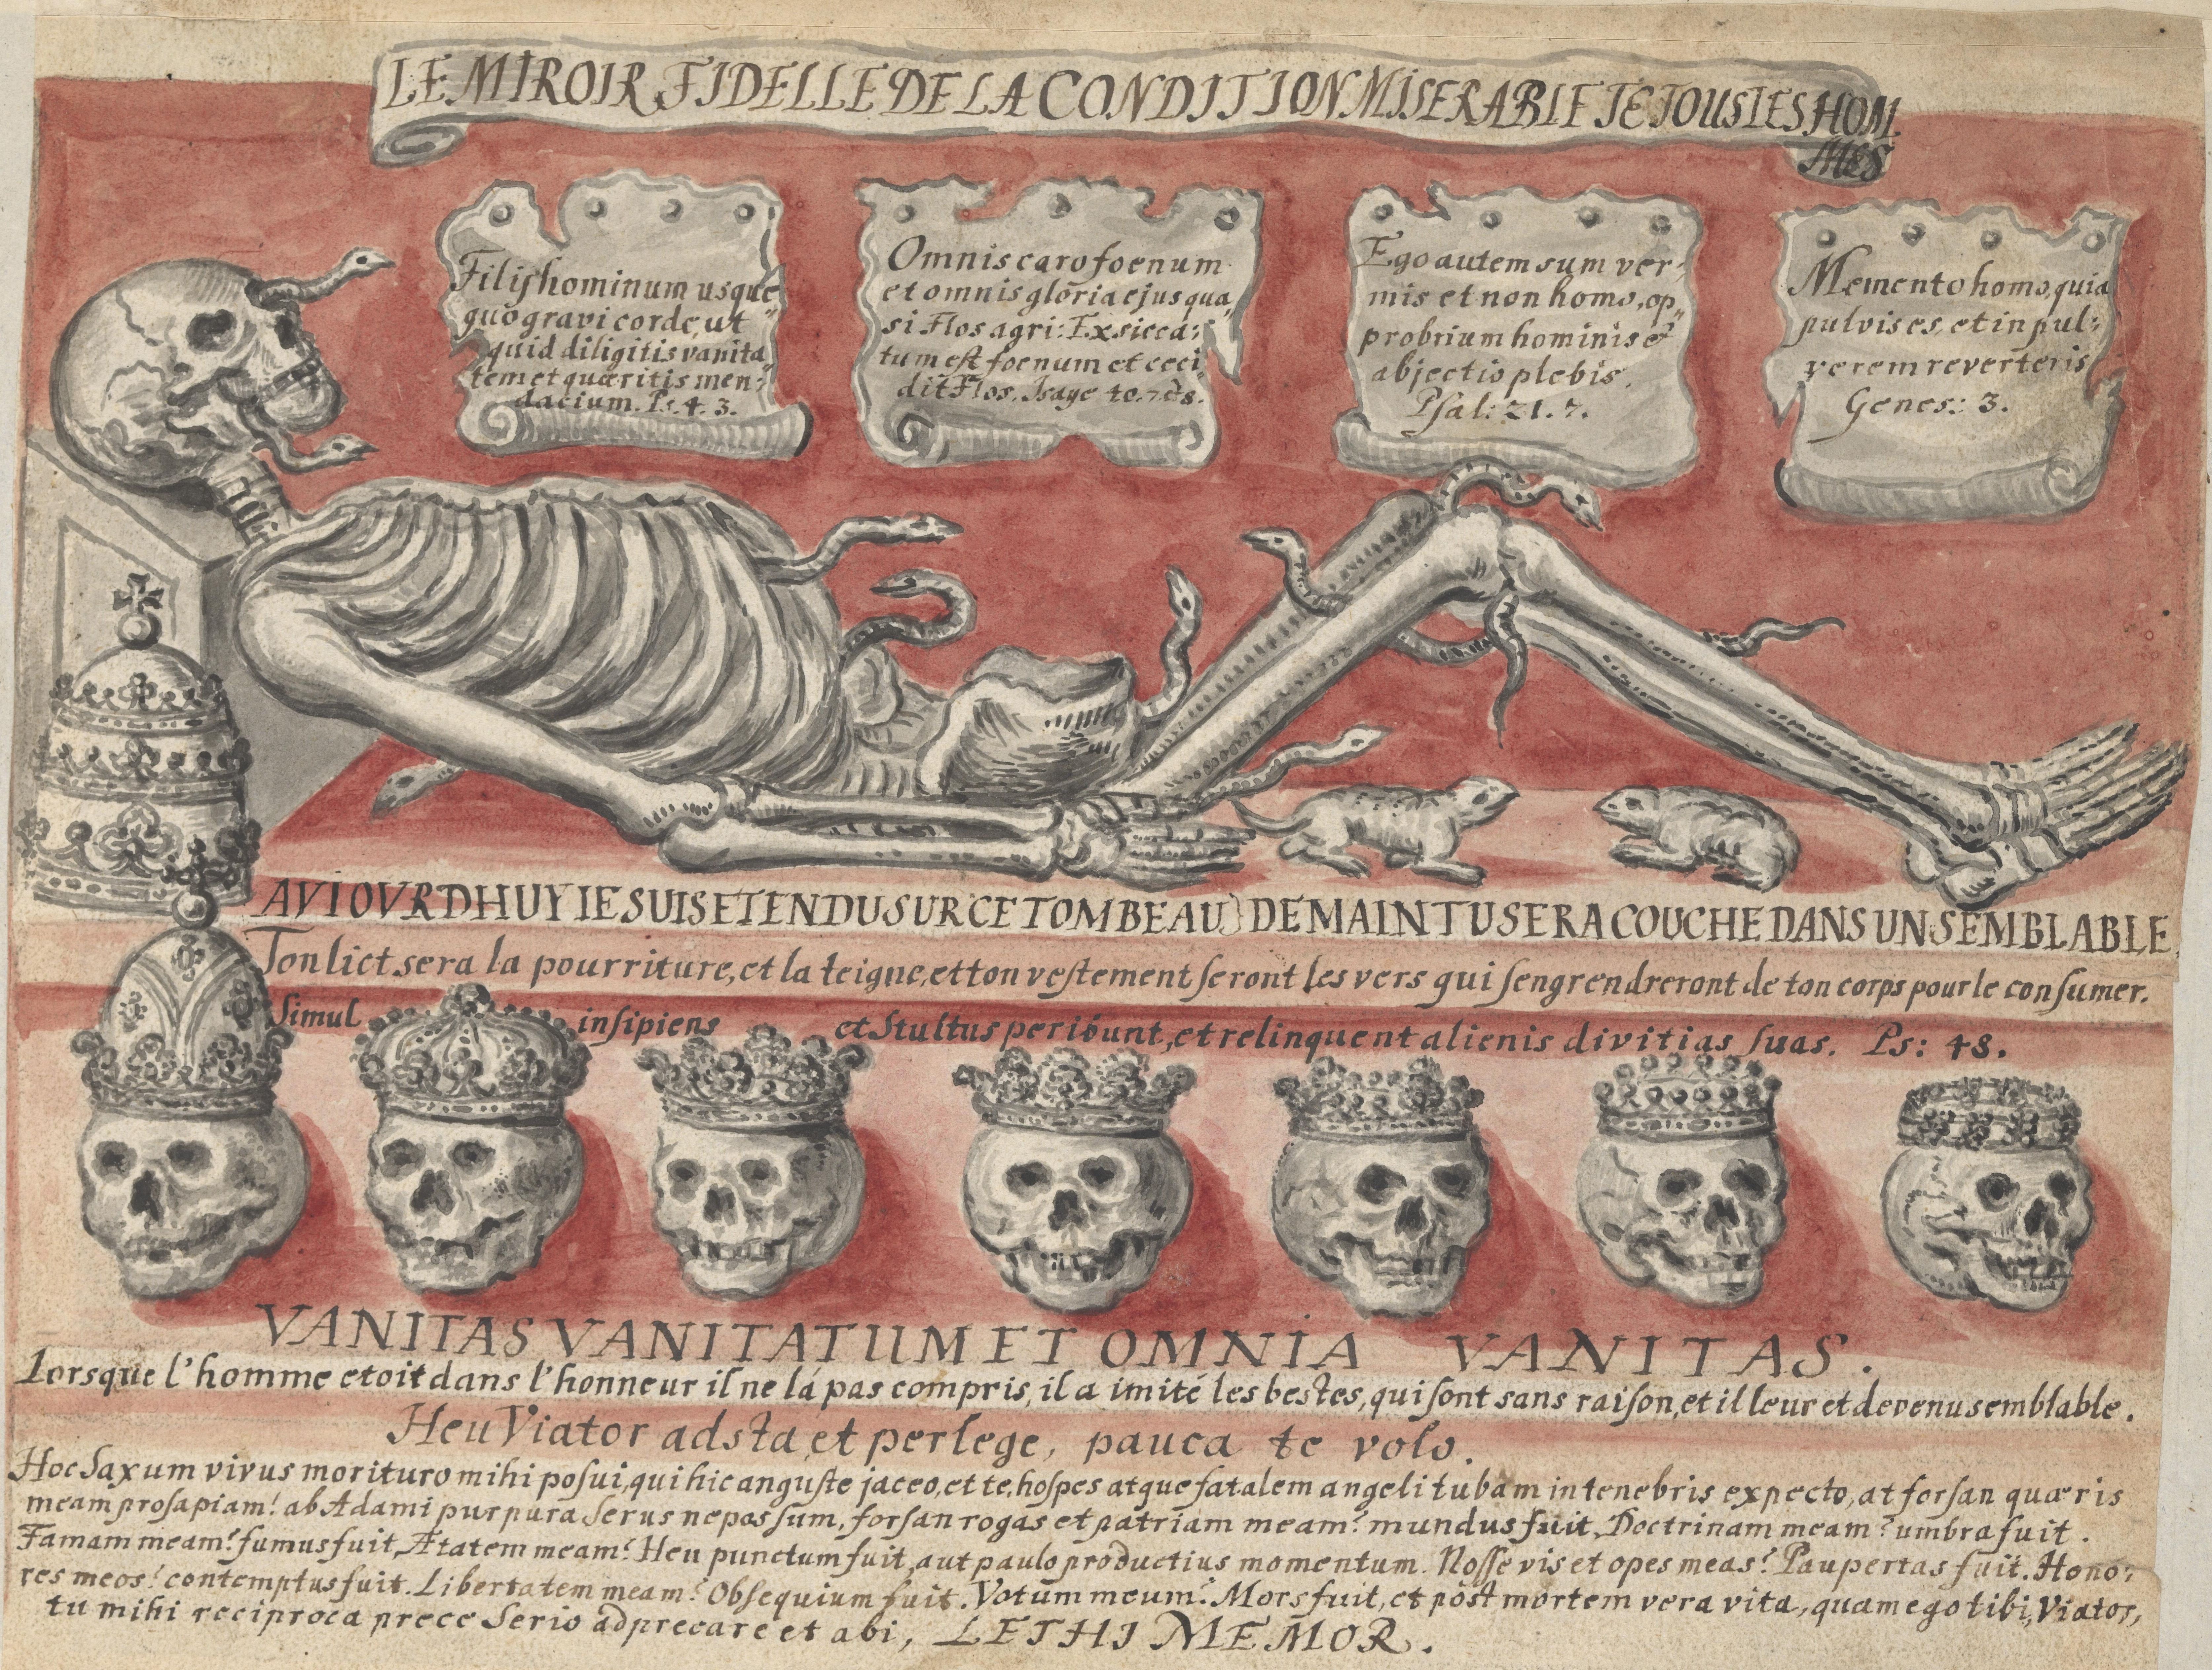 LE MIROIR FIDELLE DE LA CONDITION MISERABLE TE TOUS LES HOM
MES
Filijs hominum usque
quo gravi corde, ut
quid diligitis vanita
tem et quæritis men
dacium. Ps. 4. 3.
Omnis caro foenum
et omnis glória ejus qua
si Flos agri: Exsicca:
tum est foenum et ceci
dit Flos. Isaye 40. 7 8.
Ego autem sum ver
mis et non homo, op
probrium hominis &
abjectio plebis.
Psal: 21. 7.
Memento homo, quia
pulvis es, et in pul:
verem reverteris
Genes: 3.
AVIOVRDHUY IE SUIS ETENDU SUR CE TOMBEAU) DEMAIN TU SERA COUCHE DANS UN SEMBLABLE
Ton lict sera la pourriture, et la teigne, et ton vestement seront les vers qui sengrendreront de ton corps pour le consumer.
Simul insipiens et Stultus peribunt, et relinquent alienis divitias suas. Ps: 48.
VANITAS VANITATUM ET OMNIA VANITAS.
Lorsque l'homme etoit dans l'honneur il ne lá pas compris, il a imité les bestes, qui sont sans raison, et il leur et devenu semblable.
Heu Viator adsta, et perlege, pauca te volo.
Hoc Saxum vivus morituro mihi posui, qui hic anguste jaceo, et te, hospes atque fatalem angeli tubam in tenebris expecto, at forsan quæris
meam prosapiam! ab Adami purpura Serus nepos sum, forsan rogas et patriam meam? mundus fuit, Doctrinam meam? umbra fuit.
Famam meam? fumus fuit, Ætatem meam? Heu punctum fuit, aut paulo productius momentum. Nosse vis et opes meas? Paupertas fuit. Hono:
res meos? contemptus fuit. Libertatem meam? Obsequium fuit. Votum meum? Mors fuit, et post mortem vera vita, quam ego tibi, Viator,
tu mihi reciproca prece Serio adprecare et abi, LETHI MEMOR.